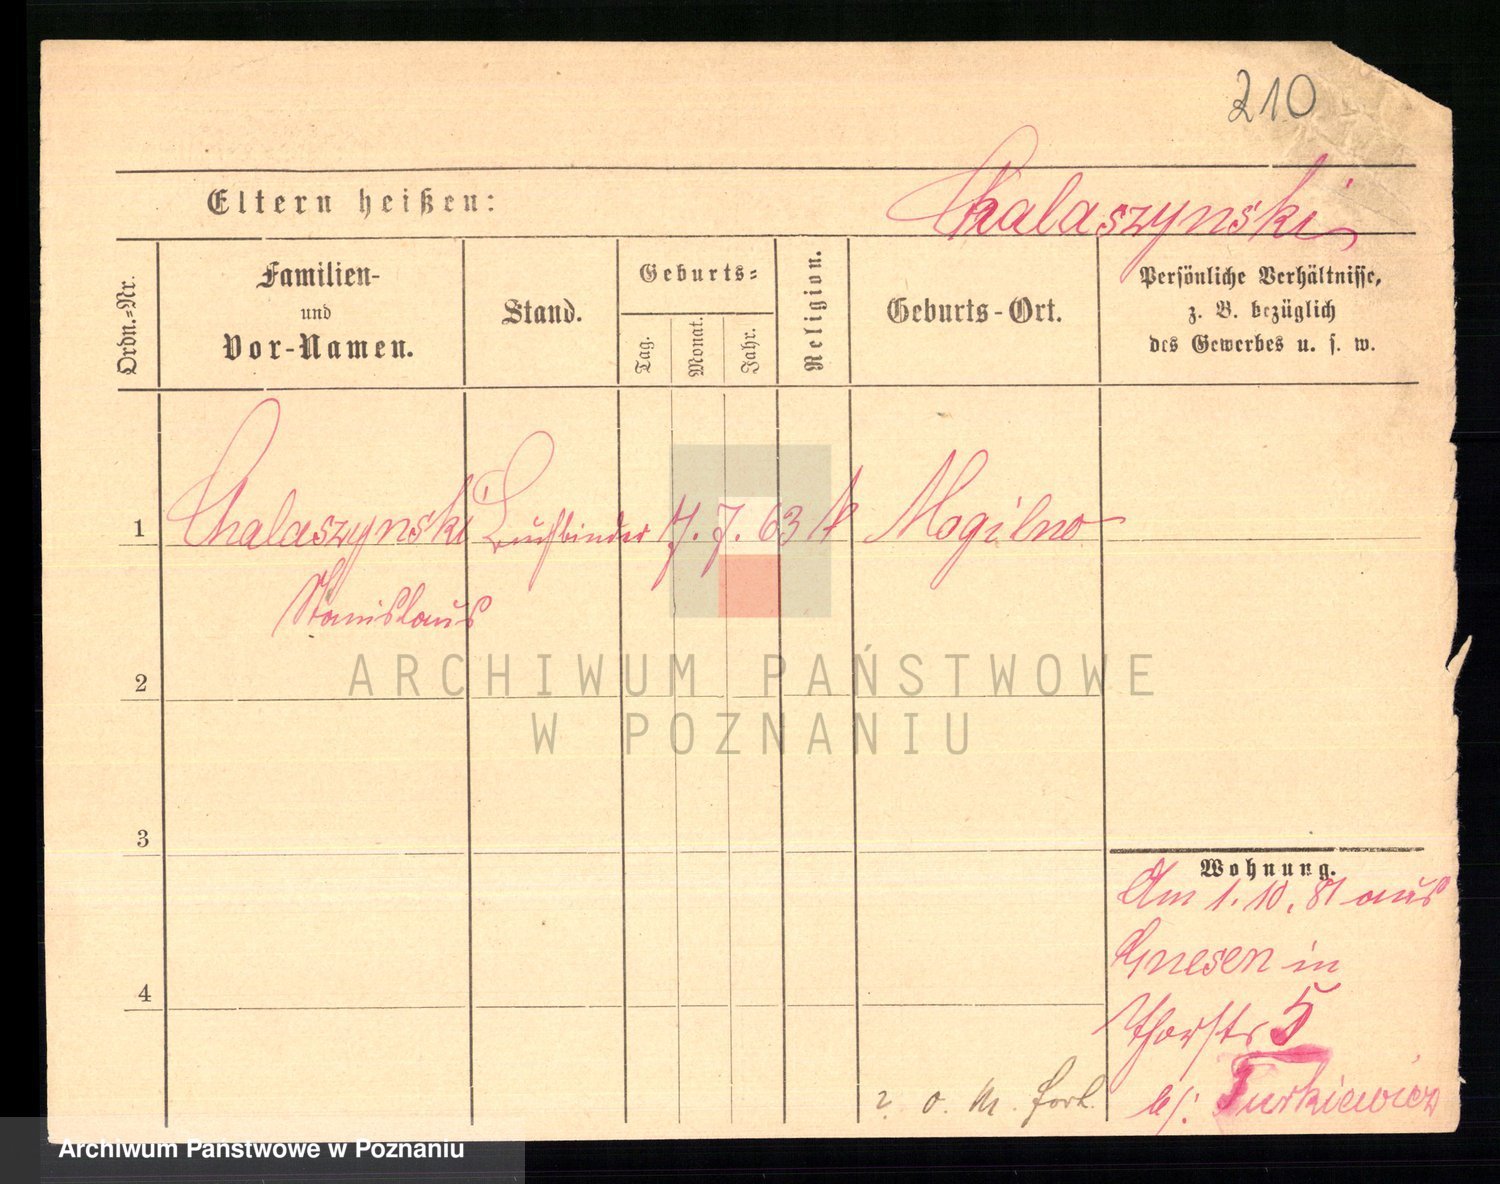 210
Eltern heißen: Chalaszynski
Ordn.-Nr.
Familien-
und
Vor-Namen.
Stand.
Geburts-
Tag.
Monat.
Jahr.
Religion.
Geburts-Ort.
Persönliche Verhältnisse,
z. B. bezüglich
des Gewerbes u. s. w.
1 Chalaszynski Buchbinder 7. 7. 63 k Mogilno
Stanislaus
2
3
4
Wohnung.
Am 1. 10. 81 aus
Gnesen in
Thorstr 5
b/: Turkiewicz
o. M. fort.
ARCHIWUM PAŃSTWOWE
W POZNANIU
Archiwum Państwowe w Poznaniu